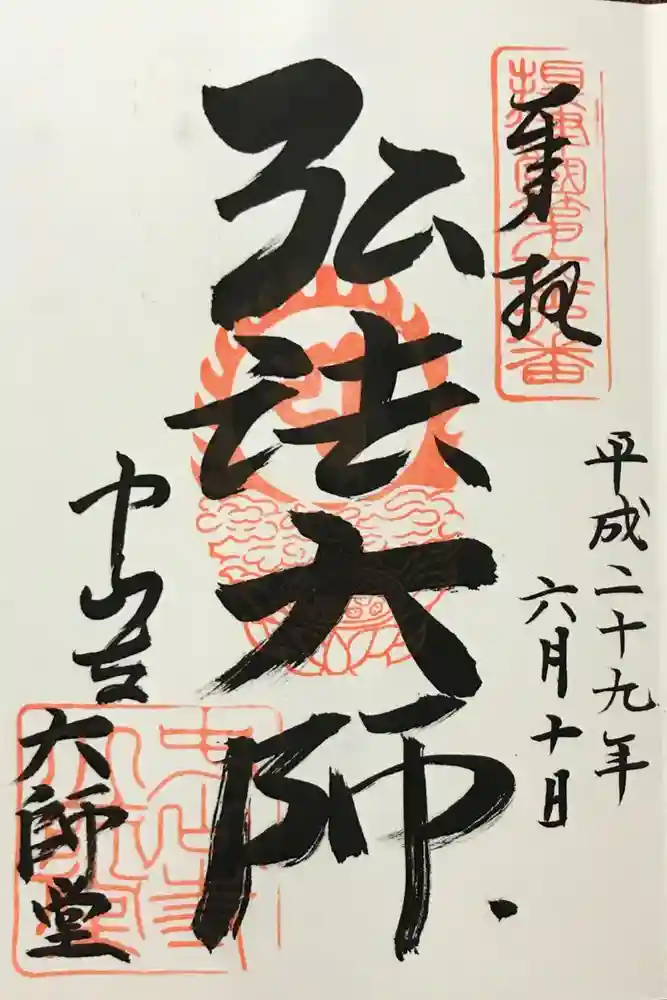 奉拝
平成二十九年
六月十日
弘法大師
中山寺
大師堂